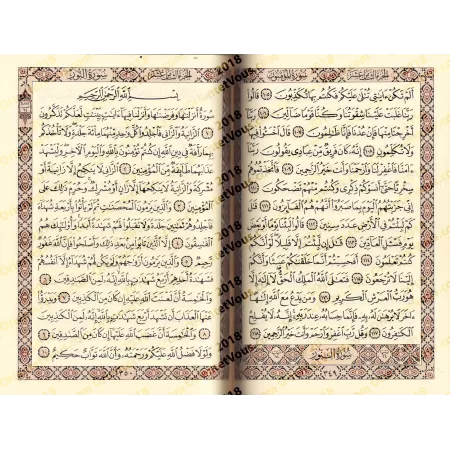 الجزء الثامن عشر
سورة المؤمنون
ألم تكن ءايتي تتلى عليكم فكنتم بها تكذبون ١٠٥ قالوا
ربنا غلبت علينا شقوتنا وكنا قوما ضالين ١٠٦ ربنا
أخرجنا منها فإن عدنا فإنا ظلمون ١٠٧ قال اخسئوا فيها
ولا تكلمون ١٠٨ إنه كان فريق من عبادي يقولون ربنا
ءامنا فاغفر لنا وارحمنا وأنت خير الرحمين ١٠٩ فاتخذتموهم
سخريا حتى أنسوكم ذكري وكنتم منهم تضحكون ١١٠ إني
جزيتهم اليوم بما صبروا أنهم هم الفائزون ١١١ قل كم
لبثتم في الأرض عدد سنين ١١٢ قالوا لبثنا يوما أو بعض
يوم فسئل العادين ١١٣ قل إن لبثتم إلا قليلا لو أنكم
كنتم تعلمون ١١٤ أفحسبتم أنما خلقنكم عبثا وأنكم
إلينا لا ترجعون ١١٥ فتعلى الله الملك الحق لا إله إلا
هو رب العرش الكريم ١١٦ ومن يدع مع الله إلها
ءاخر لا برهن له به فإنما حسابه عند ربه إنه لا يفلح
الكفرون ١١٧ وقل رب اغفر وارحم وأنت خير الرحمين ١١٨
سورة النور
٣٤٩
سورة النور
الجزء الثامن عشر
بسم الله الرحمن الرحيم
سورة أنزلنها وفرضنها وأنزلنا فيها ءايت بينت لعلكم تذكرون
١ الزانية والزاني فاجلدوا كل وحد منهما مائة جلدة ولا تأخذكم
بهما رأفة في دين الله إن كنتم تؤمنون بالله واليوم الأخر وليشهد
عذابهما طائفة من المؤمنين ٢ الزاني لا ينكح إلا زانية أو
مشركة والزانية لا ينكحها إلا زان أو مشرك وحرم ذلك على
المؤمنين ٣ والذين يرمون المحصنت ثم لم يأتوا بأربعة شهداء
فاجلدوهم ثمنين جلدة ولا تقبلوا لهم شهدة أبدا وأولئك هم
الفسقون ٤ إلا الذين تابوا من بعد ذلك وأصلحوا فإن الله غفور
رحيم ٥ والذين يرمون أزوجهم ولم يكن لهم شهداء إلا أنفسهم
فشهدة أحدهم أربع شهدت بالله إنه لمن الصدقين ٦
والخمسة أن لعنت الله عليه إن كان من الكذبين ٧ ويدرؤا
عنها العذاب أن تشهد أربع شهدت بالله إنه لمن الكذبين
٨ والخمسة أن غضب الله عليها إن كان من الصدقين ٩
ولولا فضل الله عليكم ورحمته وأن الله تواب حكيم ١٠
٣٥٠